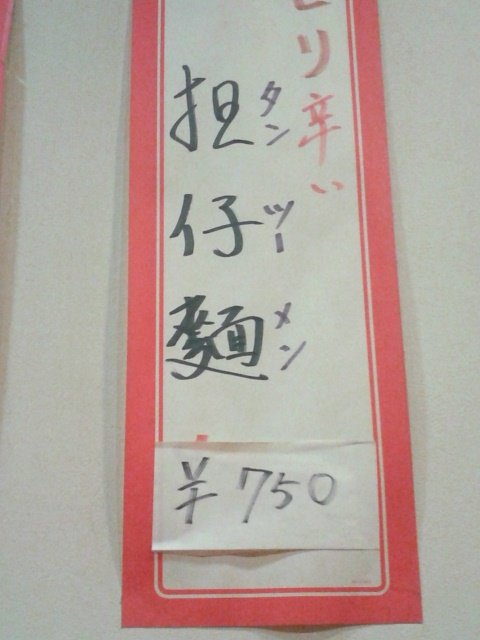 リ辛い
担仔麺
タンツーメン
¥750